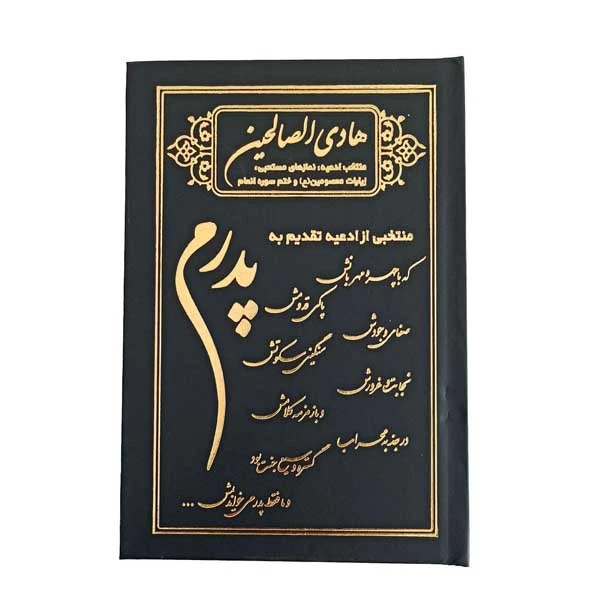 هادی الصالحین
منتخب ادعیه، نمازهای مستحبی،
زیارات معصومین(ع) و ختم سوره انعام
منتخبی از ادعیه تقدیم به
پدرم
که با چهره مهربانش
پاکی قدومش
صفای وجودش
سنگینی سکوتش
نجابت و غرورش
و با زمزمه کلامش
در جذبه محراب
گستره وسیع جنت بود
و ما فقط پدر می خواندیمش ...